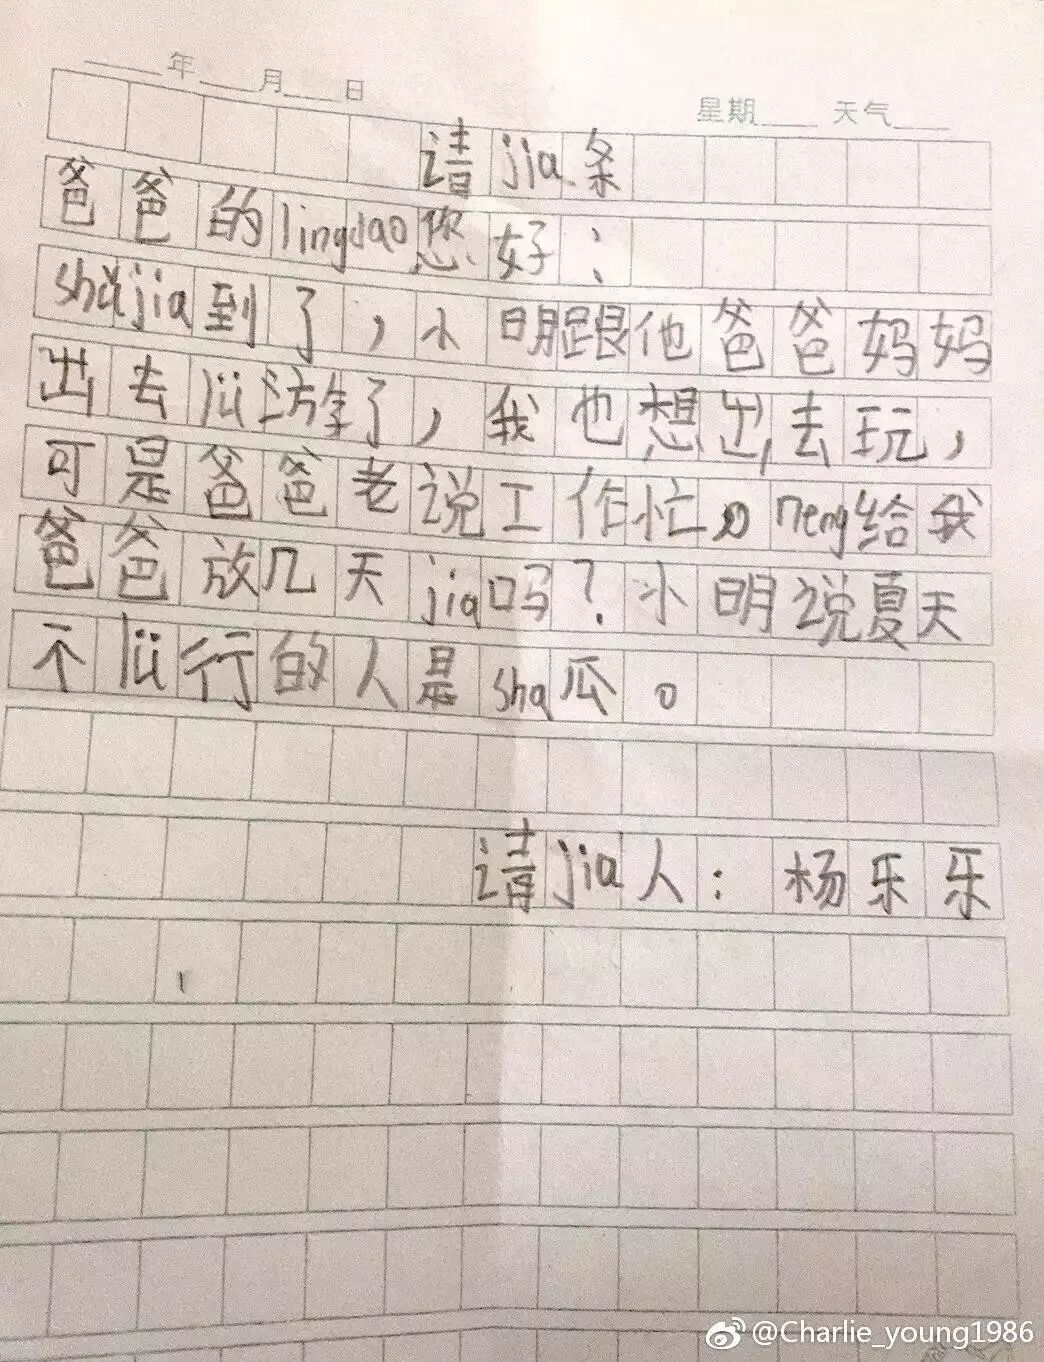 年 月 日
星期 天气
请jia条
爸爸的lingdao您好：
shǔjia到了，小明跟他爸爸妈妈
出去lü游了，我也想出去玩，
可是爸爸老说工作忙。neng给我
爸爸放几天jia吗？小明说夏天
不lü行的人是sha瓜。
请jia人：杨乐乐
@Charlie_young1986